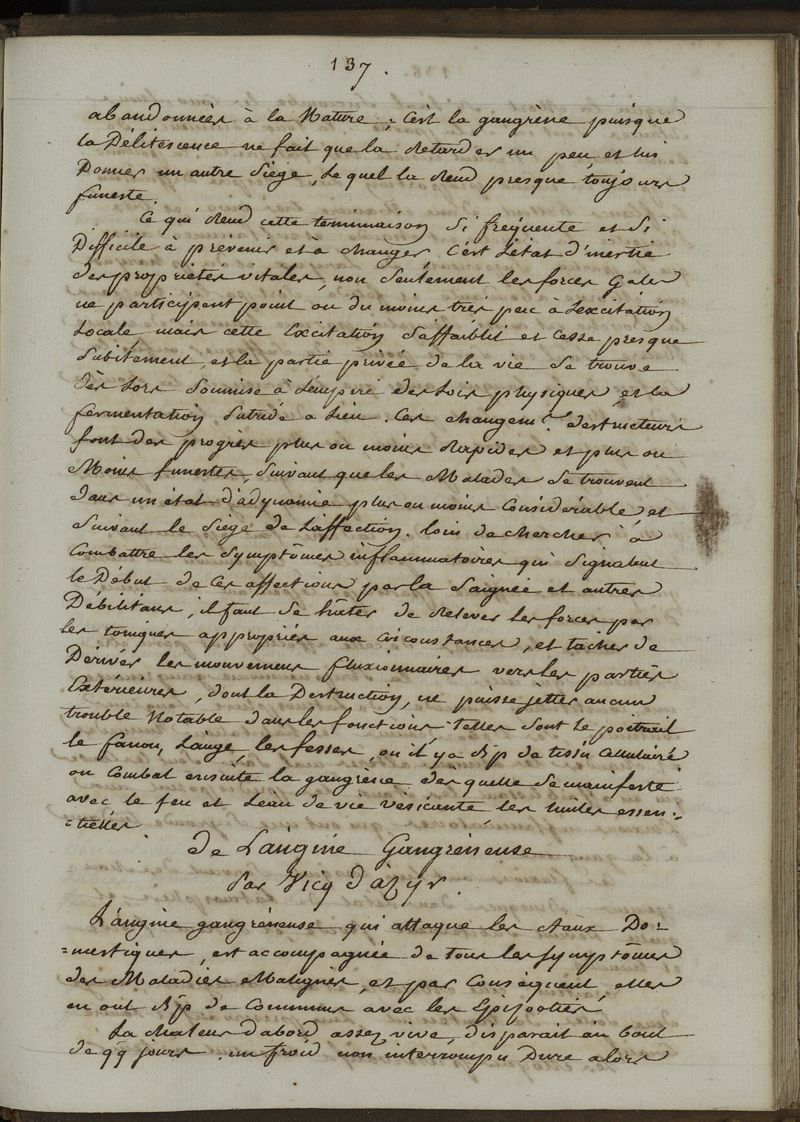 137.
abandonnées à la Nature ; C'est la gangrène puisque
la Délitescence ne fait que la Retarder un peu et lui
Donner un autre Siege, Lequel la Rend presque toujours
funeste.
Ce qui Rend cette terminaison Si freqúente et Si
Difficile à prévenir et à changer, C'est L'état d'inertie
des propriétés vitales, non Seulement les forces Gales
ne participent point ou du moins très peu à L'excitation
Locale, mais cette Excitation S'affaiblit et Cesse presque
Subitement, et la partie privée de la vie Se trouve
Dès Lors Soumise à L'empire des Lois physiques, et la
fermentation Putride a Lieu. Ces changemts destructeurs
font des progrès plus ou moins Rapides et plus ou
Moins funestes, Suivant que les Malades Se trouvent
dans un état d'adynamie plus ou moins Considérable, et
Suivant le Siege de L'affection. Loin de chercher à
Combattre les Symptômes inflammatoires qui Signalent
le Début de Ces affections par la Saignée et autres
Débilitans, il faut Se hâter de Relever les forces par
les toniques appropriés aux Circonstances, et tâcher de
Dériver les mouvemens fluxionnaires vers les parties
Extérieures, dont la Destruction, ne puisse jetter aucun
trouble Notable dans les fonctions telles Sont le poitrail
le fanon, L'auge, les fesses, où il y a Bp de tissu Cellulaire
on Combat ensuite la gangrène dès quelle Se manifeste
avec le feu et L'eau de vie vésicante, les huiles essen-
=tielles
de L'angine Gangréneuse
Par Vicq d'azyr.
L'angine gangréneuse qui attaque les aaux Do=
=mestiques, est accompagnée de tous les Symptômes
des Maladies Malignes, et par Conséquent, elles
en ont Bp de Communs avec les Epizooties,
La chaleur d'abord assez vive, disparait au bout
de qq jours. un froid non interrompu Dure alors